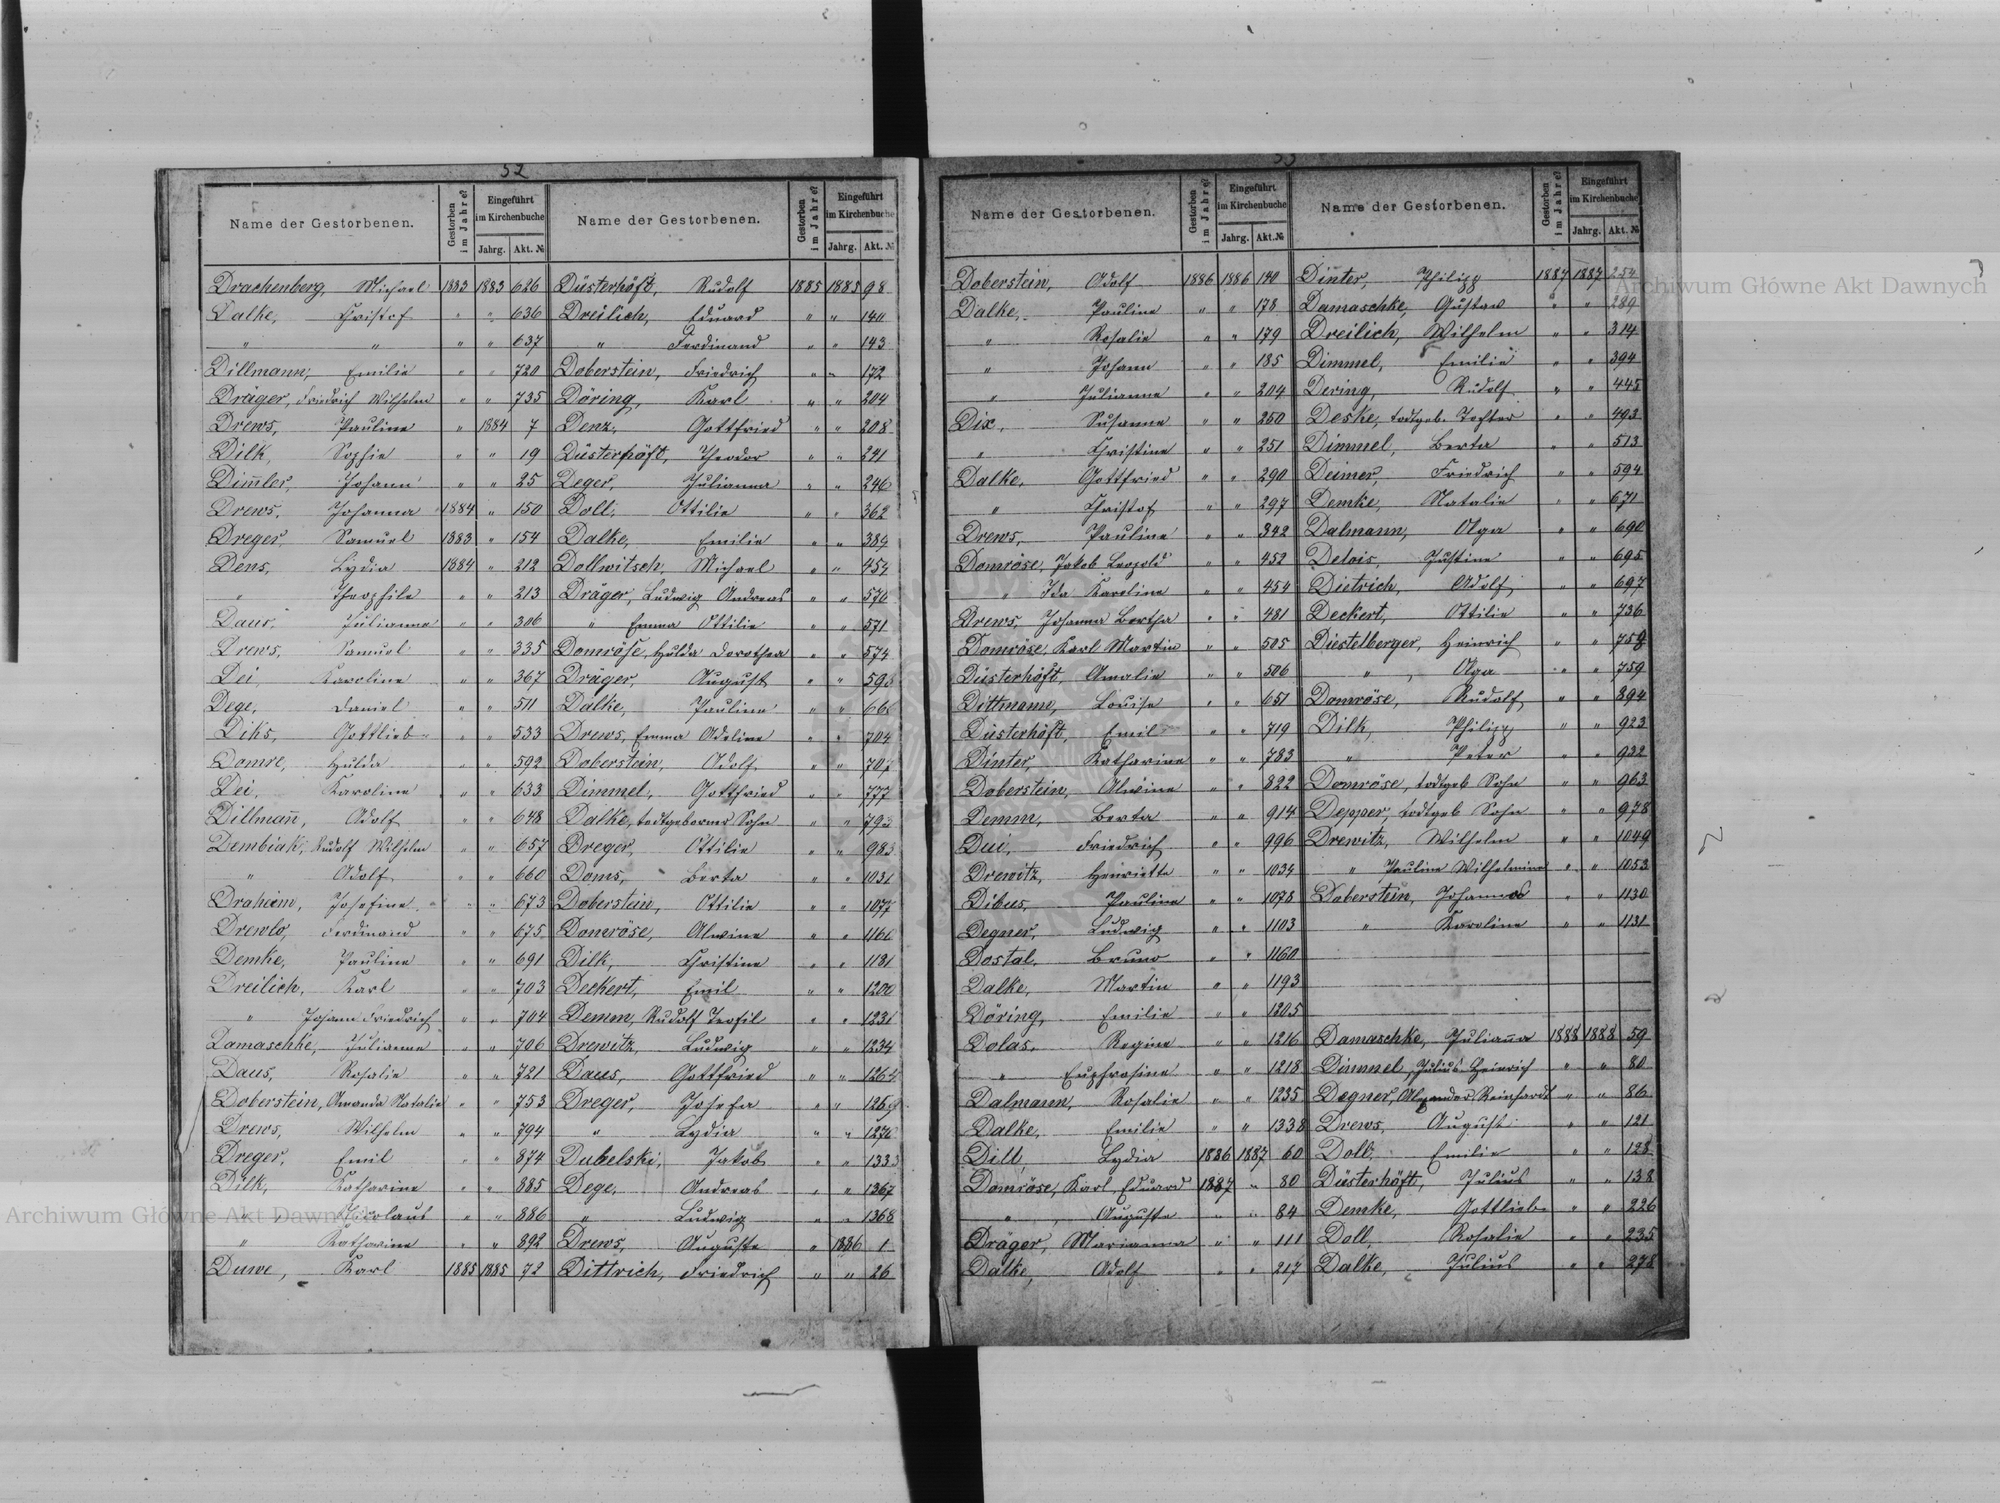 52
Name der Gestorbenen. Gestorben im Jahre? Eingeführt im Kirchenbuche Jahrg. Akt. №
Drachenberg, Michael 1883 1883 626
Dalke, Christof " " 636
" " " " 637
Dillmann, Emilie " " 720
Dräger, Friedrich Wilhelm " " 735
Drews, Pauline " 1884 7
Dilk, Sophie " " 19
Dim̄ler, Johann " " 25
Drews, Johanna 1884 " 150
Dreger, Samuel 1883 " 154
Dens, Lydia 1884 " 212
" Theophile " " 213
Daus, Julianne " " 306
Drews, Samuel " " 335
Dei, Karoline " " 367
Dege, Daniel " " 511
Diks, Gottlieb " " 533
Domre, Hulda " " 592
Dei, Karoline " " 633
Dillman̄, Adolf " " 648
Dembiak, Rudolf Wilhelm " " 657
" Adolf " " 660
Drahiem, Josefine " " 673
Drewlo, Ferdinand " " 675
Demke, Pauline " " 691
Dreilich, Karl " " 703
" Johann Friedrich " " 704
Damaschke, Julianne " " 706
Daus, Rosalie " " 721
Doberstein, Amanda Natalie " " 753
Drews, Wilhelm " " 794
Dreger, Emil " " 874
Dilk, Katharine " " 885
" Nicolaus " " 886
" Katharine " " 892
Duwe, Karl 1885 1885 72
Name der Gestorbenen. Gestorben im Jahre? Eingeführt im Kirchenbuche Jahrg. Akt. №
Düsterhöft, Rudolf 1885 1885 98
Dreilich, Eduard " " 140
" Ferdinand " " 143
Doberstein, Friedrich " " 172
Döring, Karl " " 204
Denz, Gottfried " " 208
Düsterhöft, Theodor " " 241
Deger, Julianna " " 246
Doll, Ottilie " " 362
Dalke, Emilie " " 389
Dollwitsch, Michael " " 454
Dräger, Ludwig Andreas " " 570
" Emma Ottilie " " 571
Domröse, Hulda Dorothea " " 574
Dräger, August " "
Dalke, Pauline " "
Drews, Emma Adeline " " 704
Doberstein, Adolf " "
Dimmel, Gottfried " " 777
Dalke, todtgeborner Sohn " "
Dreger, Ottilie " "
Doms, Berta " " 1031
Doberstein, Ottilie " " 1077
Domröse, Alwine " "
Dilk, Christine " " 1181
Deckert, Emil " " 1200
Demm, Rudolf Teofil " " 1231
Drewitz, Ludwig " " 1234
Daus, Gottfried " "
Dreger, Josefa " "
" Lydia " " 1276
Dubelski, Jakob " " 1333
Dege, Andreas " " 1367
" Ludwig " " 1368
Drews, Auguste " 1886 1
Dittrich, Friedrich " " 26
53
Name der Gestorbenen. Gestorben im Jahre? Eingeführt im Kirchenbuche Jahrg. Akt. №
Doberstein, Adolf 1886 1886 140
Dalke, Pauline " " 178
" Rosalie " " 179
" Johann " " 185
" Julianna " " 204
Dix, Susanna " " 250
" Christine " " 251
Dalke, Gottfried " " 290
" Christof " " 297
Drews, Pauline " " 342
Domröse, Jakob Leopold " " 452
" Ida Karoline " " 454
Drews, Johanna Bertha " " 481
Domröse, Karl Martin " " 505
Düsterhöft, Amalie " " 506
Dittmann, Louise " " 651
Düsterhöft, Emil " " 719
Dinter, Katharine " " 783
Doberstein, Alwine " " 822
Demm, Berta " " 914
Dui, Friedrich " " 996
Drewitz, Henriette " " 1034
Dibus, Pauline " " 1078
Degner, Ludwig " " 1103
Dostal, Bruno " " 1160
Dalke, Martin " " 1193
Döring, Emilie " " 1205
Dolas, Regine " " 1216
" Euphrosine " " 1218
Dalmann, Rosalie " " 1235
Dalke, Emilie " " 1338
Dill, Lydia 1886 1887 60
Domröse, Karl Eduard 1887 " 80
" Auguste " " 84
Dräger, Marianna " " 111
Dalke, Adolf " " 217
Name der Gestorbenen. Gestorben im Jahre? Eingeführt im Kirchenbuche Jahrg. Akt. №
Dinter, Philipp 1887 1887 254
Damaschke, Gustav " " 289
Dreilich, Wilhelm " " 314
Dimmel, Emilie " " 394
Dering, Rudolf " " 445
Deske, todtgeb. Tochter " " 493
Dimmel, Berta " " 513
Deimer, Friedrich " " 594
Demke, Natalie " " 671
Dalmann, Olga " " 690
Delois, Justine " " 695
Dietrich, Adolf " " 697
Deckert, Ottilie " " 736
Diestelberger, Heinrich " " 758
" Olga " " 759
Domröse, Rudolf " " 894
Dilk, Philipp " " 923
" Peter " " 932
Domröse, todtgeb Sohn " " 963
Depper, todtgeb Sohn " " 978
Drewitz, Wilhelm " " 1049
" Pauline Wilhelmine " " 1053
Doberstein, Johannes " " 1130
" Karoline " " 1131
Damaschke, Julian̄a 1888 1888 59
Dimmel, Julius Heinrich " " 80
Degner, Alexander Reinhardt " " 86
Drews, August " " 121
Doll, Emilie " " 128
Düsterhöft, Julius " " 138
Demke, Gottlieb " " 226
Doll, Rosalie " " 235
Dalke, Julius " " 278
Archiwum Główne Akt Dawnych
Archiwum Główne Akt Dawnych